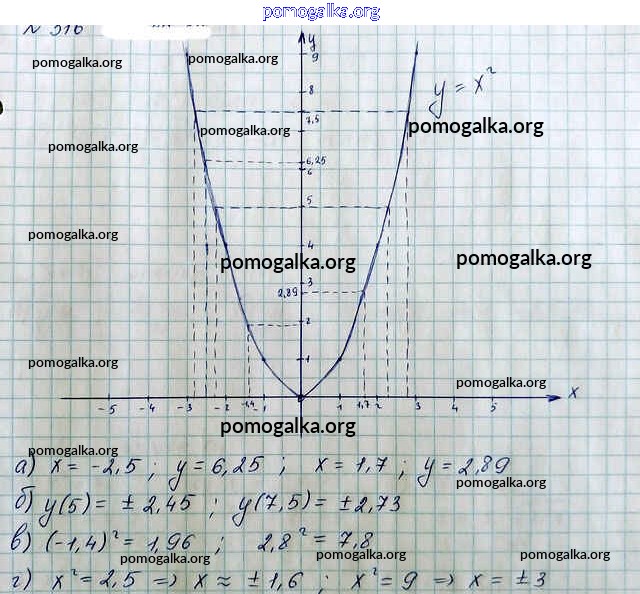 pomogalka.org
N 316
pomogalka.org pomogalka.org
y
9
8
y = x²
7,5
pomogalka.org pomogalka.org
pomogalka.org
6,25
6
5
pomogalka.org
4
pomogalka.org pomogalka.org
3
2,89
2
1
pomogalka.org
pomogalka.org
-5 -4 -3 -2 -1,4 -1 0 1 1,7 2 3 4 5 x
pomogalka.org
pomogalka.org
а) x = -2,5 ; y = 6,25 ; x = 1,7 ; y = 2,89
pomogalka.org
б) y(5) = ± 2,45 ; y(7,5) = ± 2,73
в) (-1,4)² = 1,96 ; 2,8² = 7,8
pomogalka.org pomogalka.org pomogalka.org
г) x² = 2,5 => x ≈ ± 1,6 ; x² = 9 => x = ± 3